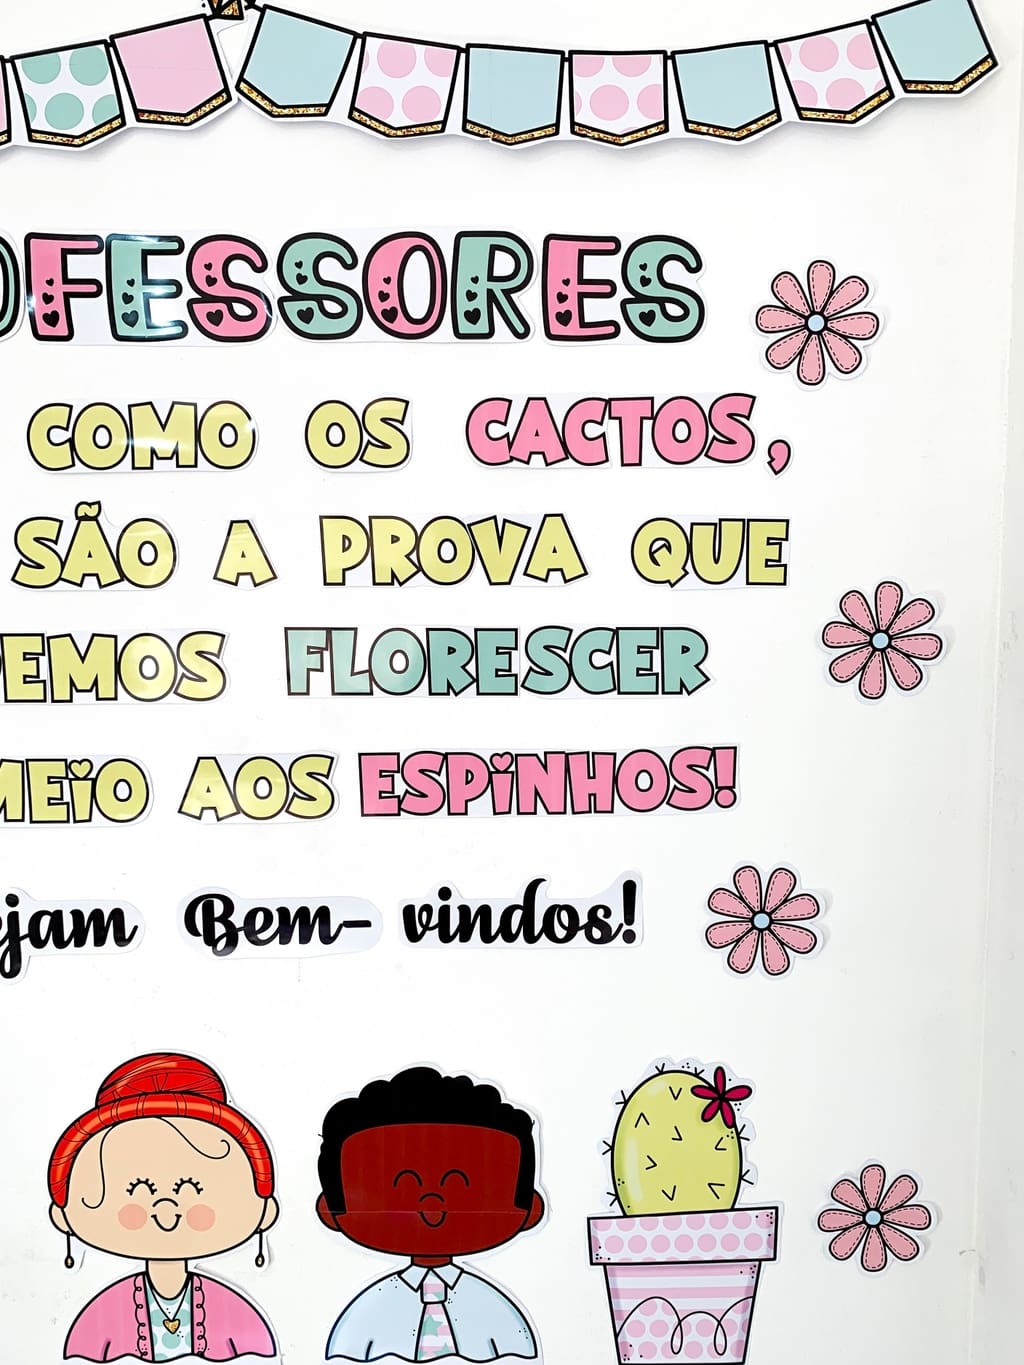 OFESSORES
COMO OS CACTOS,
SÃO A PROVA QUE
DEMOS FLORESCER
MEIO AOS ESPINHOS!
ejam Bem-vindos!